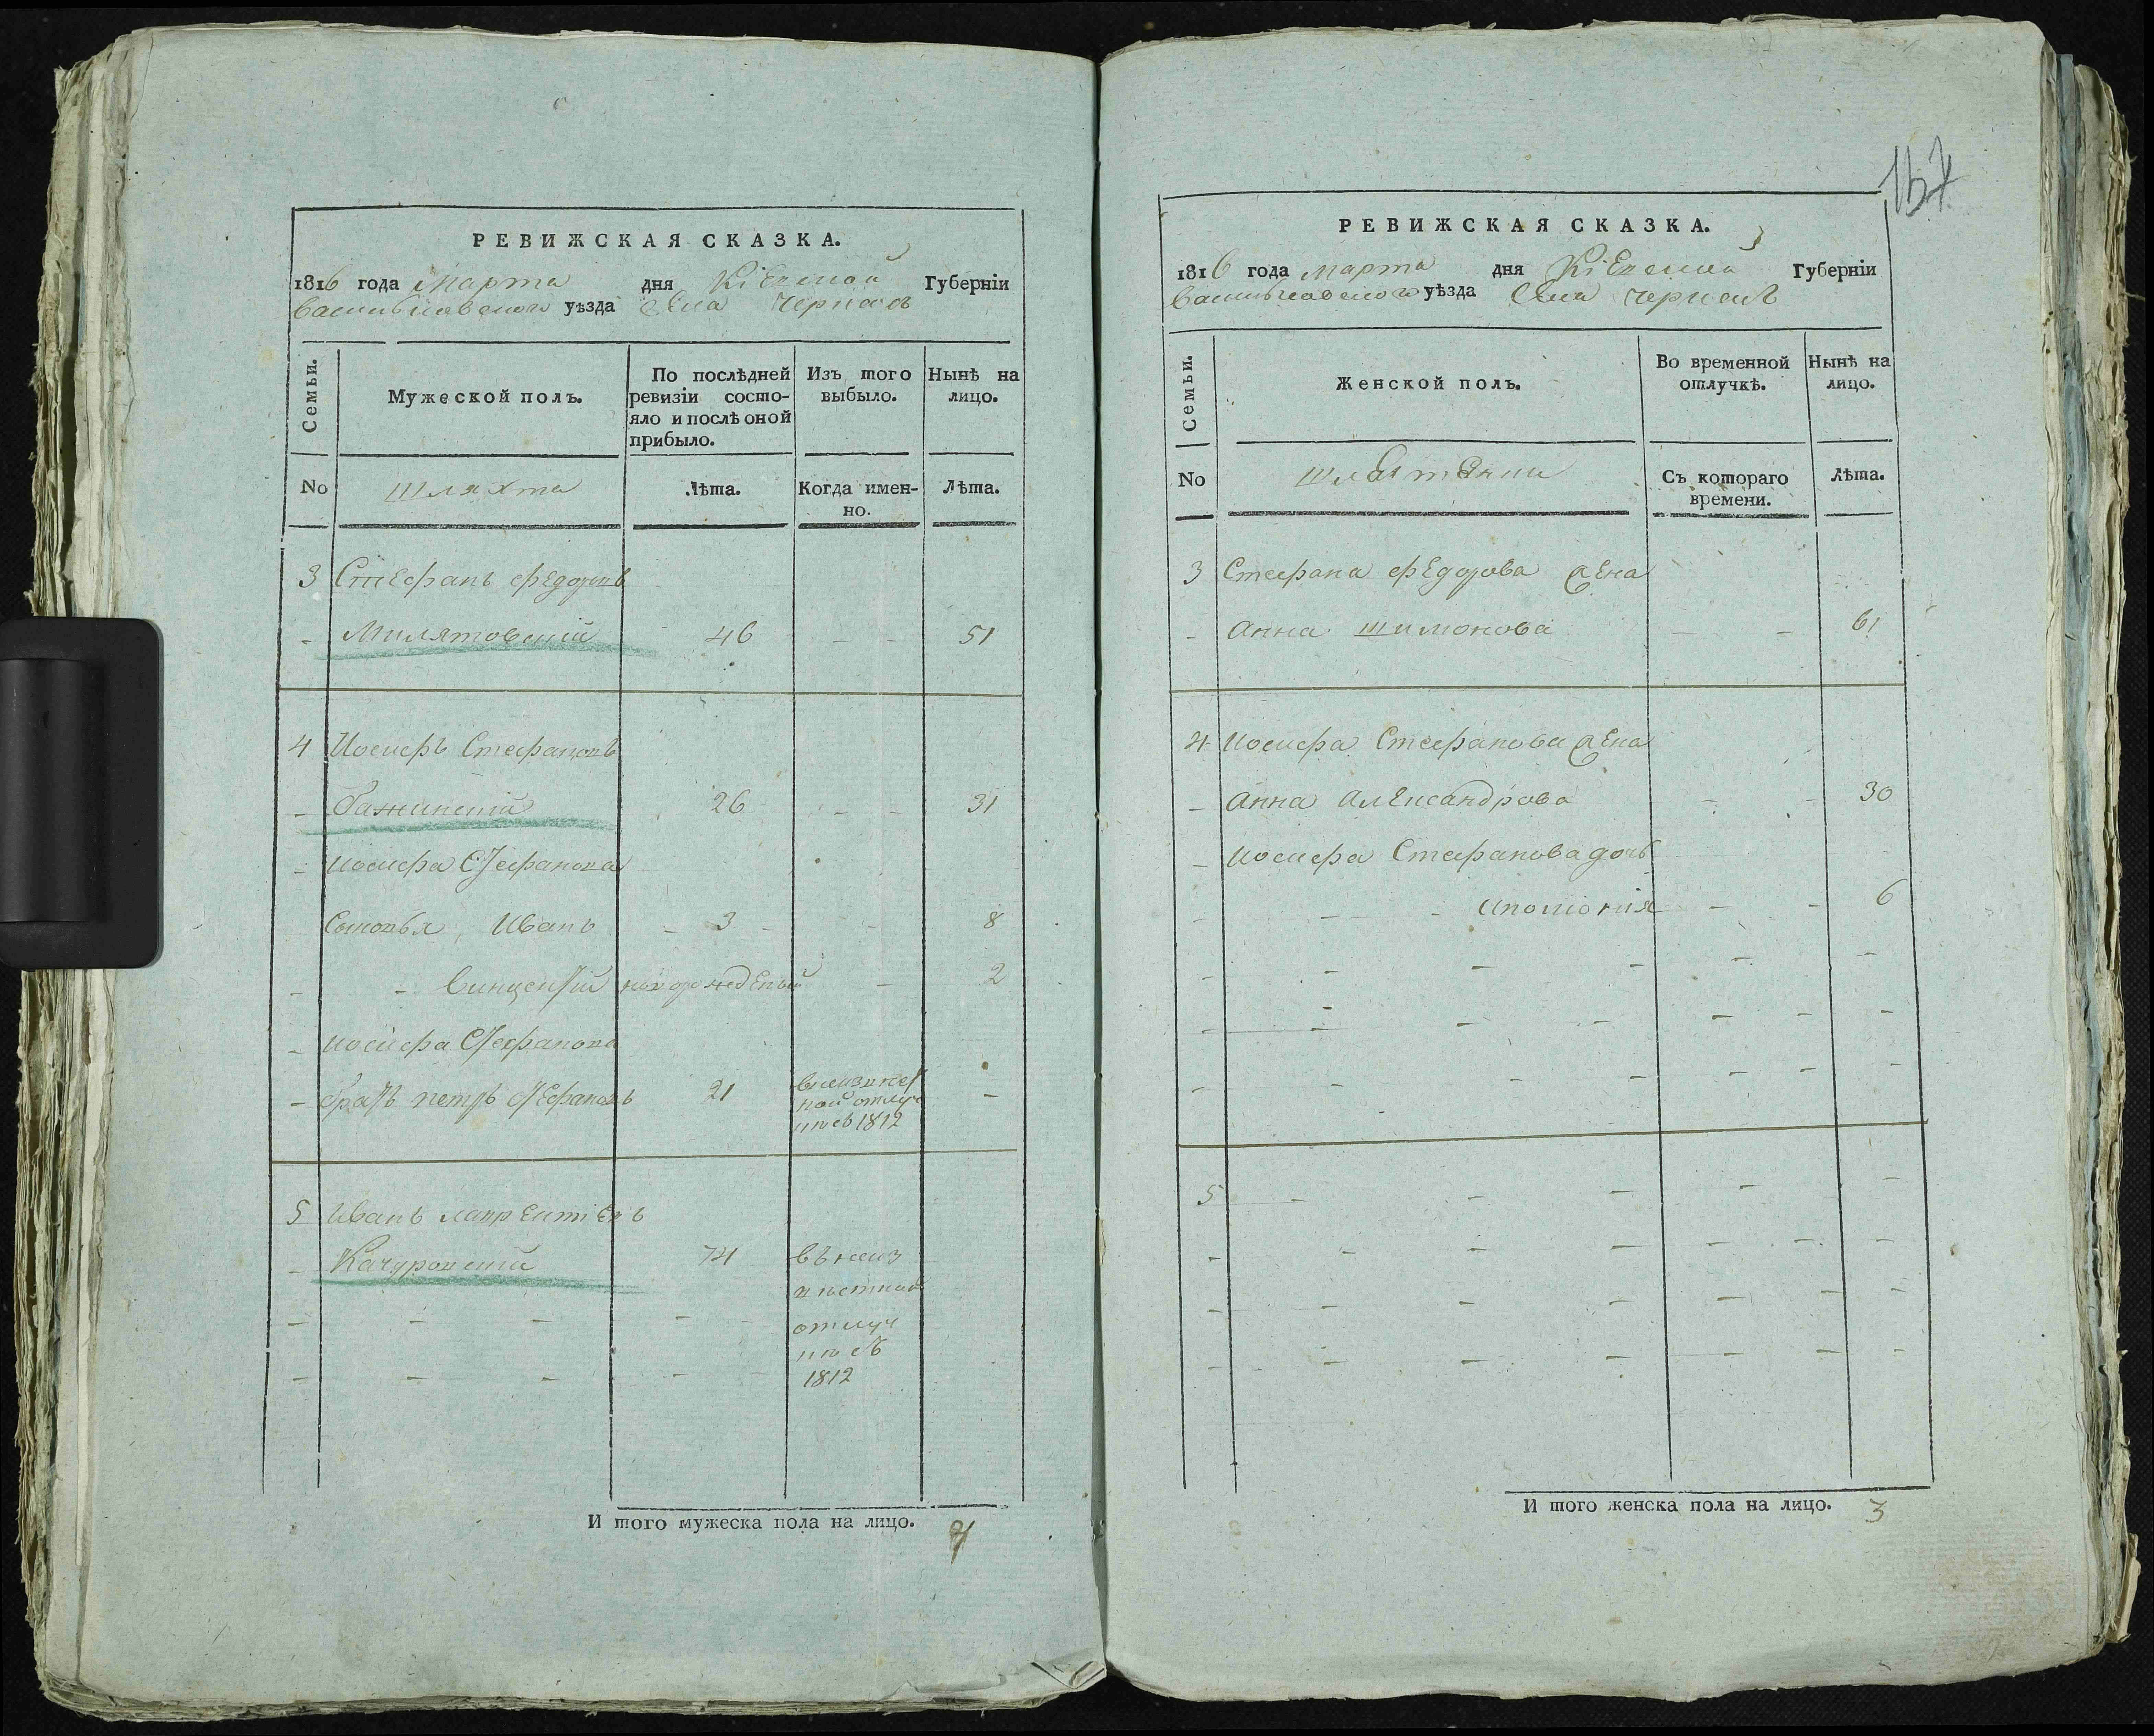 РЕВИЖСКАЯ СКАЗКА.
1816 года Марта дня Кіевской Губерніи
Васильковского уѣзда Села Черкасъ
Семьи. Мужеской полъ. По послѣдней ревизіи состояло и послѣ оной прибыло. Изъ того выбыло. Нынѣ на лицо.
No шляхта Лѣта. Когда именно. Лѣта.
3 Стефанъ Федоровъ
- Милятовский 46 - 51
4 Иосифъ Стефановъ
- Бажинский 26 - - 31
- Иосифа Стефанова
Сыновья Иванъ - 3 - - 8
- - Винцентий новорожденый - 2
- Иосифа Стефанова
- братъ петръ Стефановъ 21 -
1812
5 Иванъ лаврентиевъ
- Качуровский 74 въ неиз
вѣстной
отлуч
кѣ съ
1812
И того мужеска пола на лицо. 4
157
РЕВИЖСКАЯ СКАЗКА.
1816 года марта дня Кіевской Губерніи
Васильковского уѣзда Села Черкасъ
Семьи. Женской полъ. Во временной отлучкѣ. Нынѣ на лицо.
No шляхтянки Съ котораго времени. Лѣта.
3 Стефана Федорова жена
- Анна шимонова - - 61
4 Иосифа Стефанова жена
- Анна Александрова - - 30
- Иосифа Стефанова дочь
- - - Аполонія - - 6
5 - - - - -
И того женска пола на лицо. 3